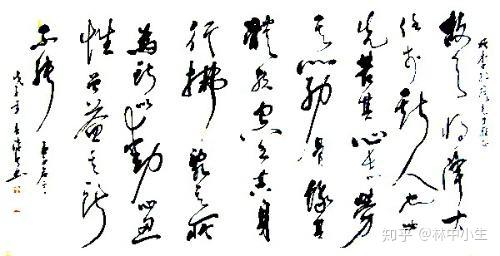 故天将降大
任于斯人也必
先苦其心志劳
其筋骨饿其
体肤空乏其身
行拂乱其所
为所以动心忍
性曾益其所
不能
知乎 @林中小生